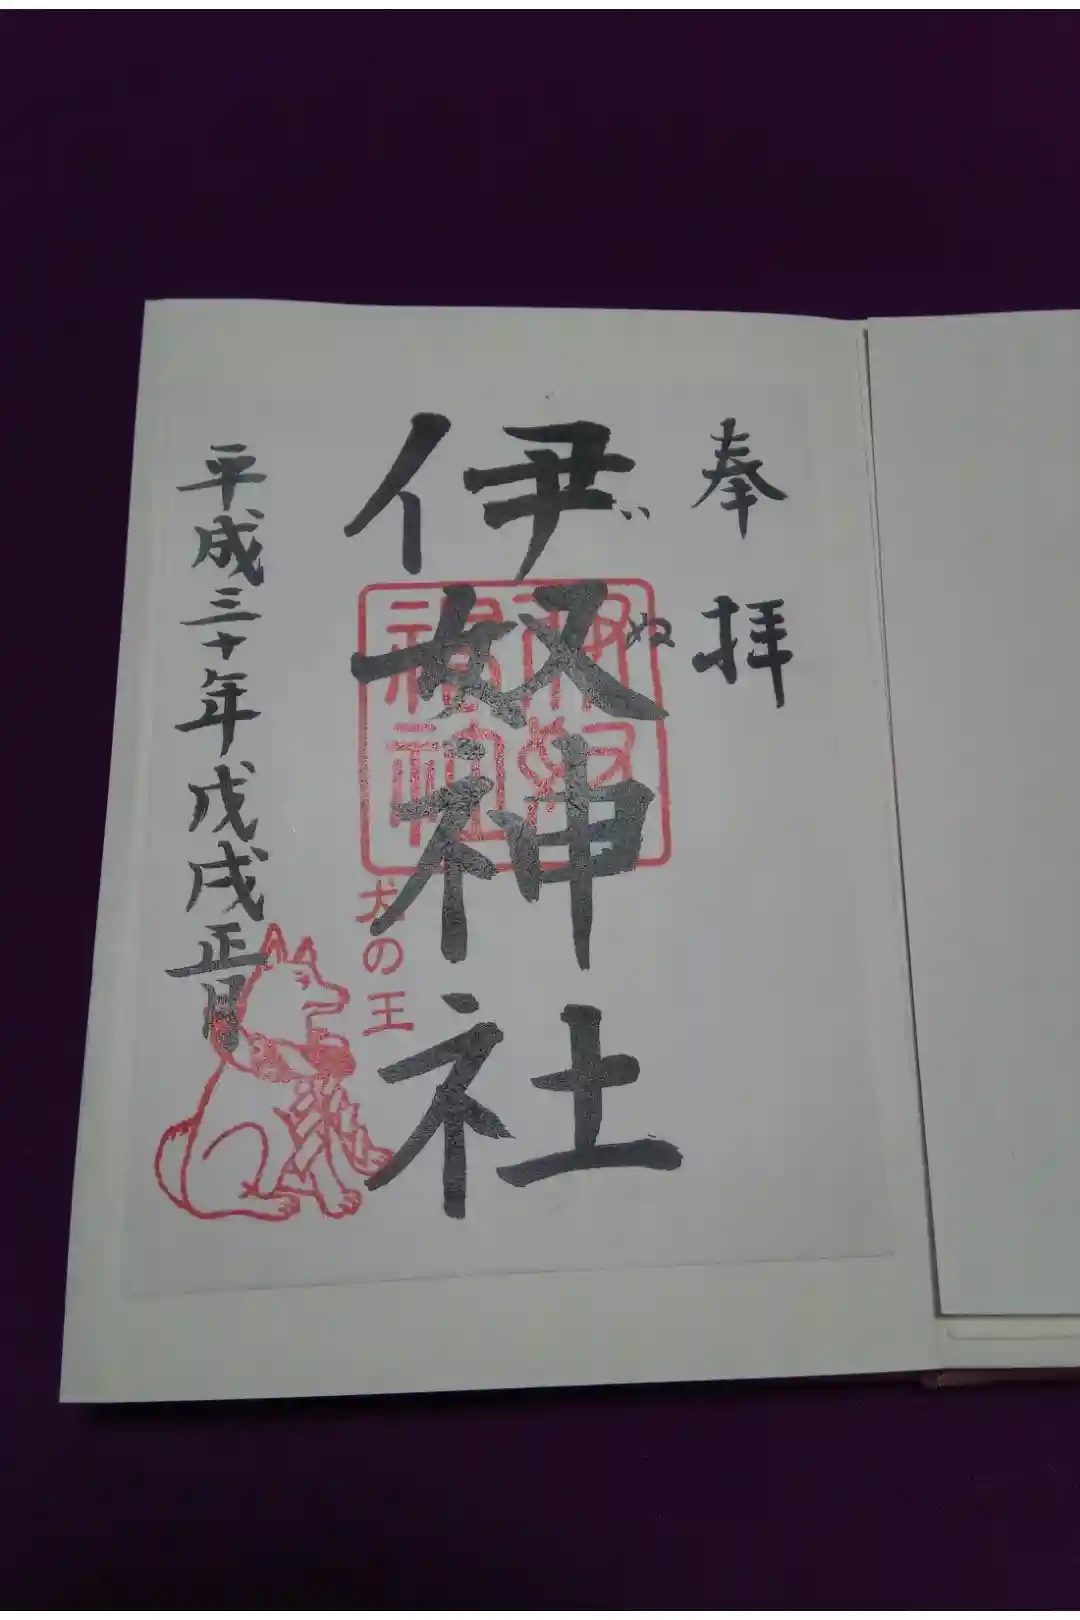 奉拝
伊奴神社
いぬ
伊奴
神社
犬の王
平成三十年戊戌正月